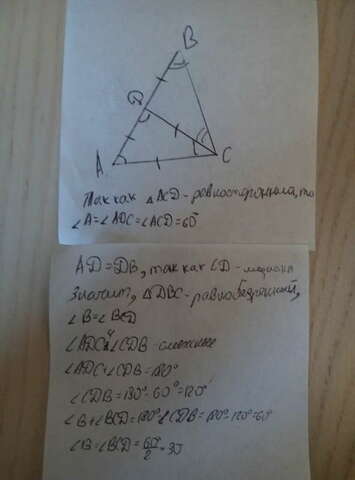 B
D
A
C
Так как △ACD - равносторонний, то
∠A=∠ADC=∠ACD=60°
AD=DB, так как CD - медиана
Значит, △DBC - равнобедренный,
∠B=∠BCD
∠ADC и ∠CDB - смежные
∠ADC+∠CDB=180°
∠CDB=180°-60°=120°
∠B+∠BCD=180°-∠CDB=180°-120°=60°
∠B=∠BCD=60°/2=30